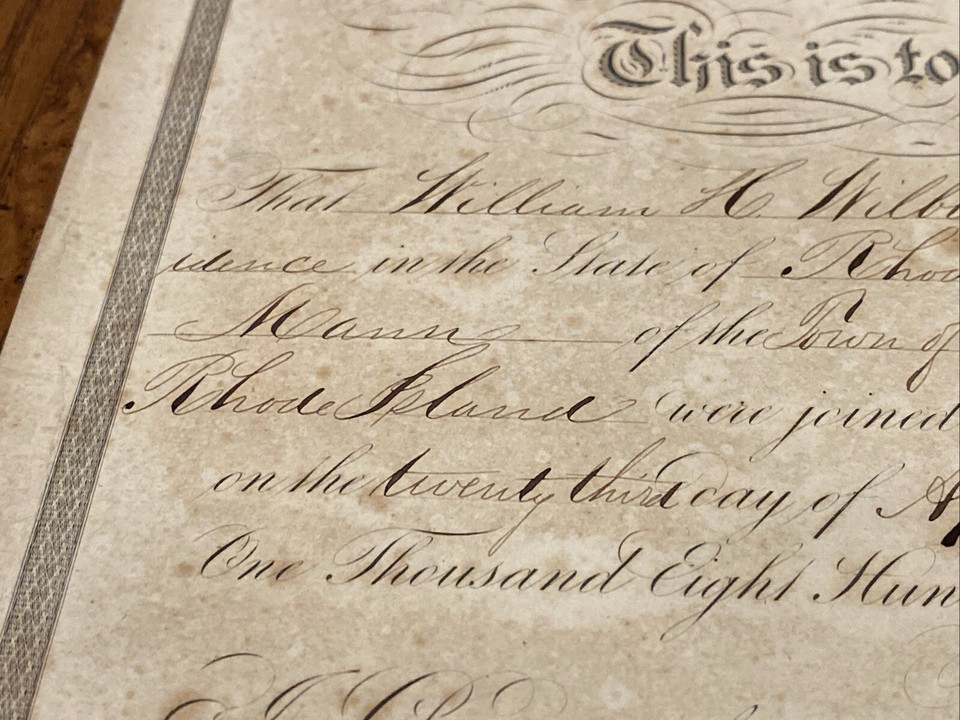 This is to
That William H. Wilb
idence in the State of Rhod
Mann of the Town of
Rhode Island were joined
on the twenty third day of Ap
One Thousand Eight Hun